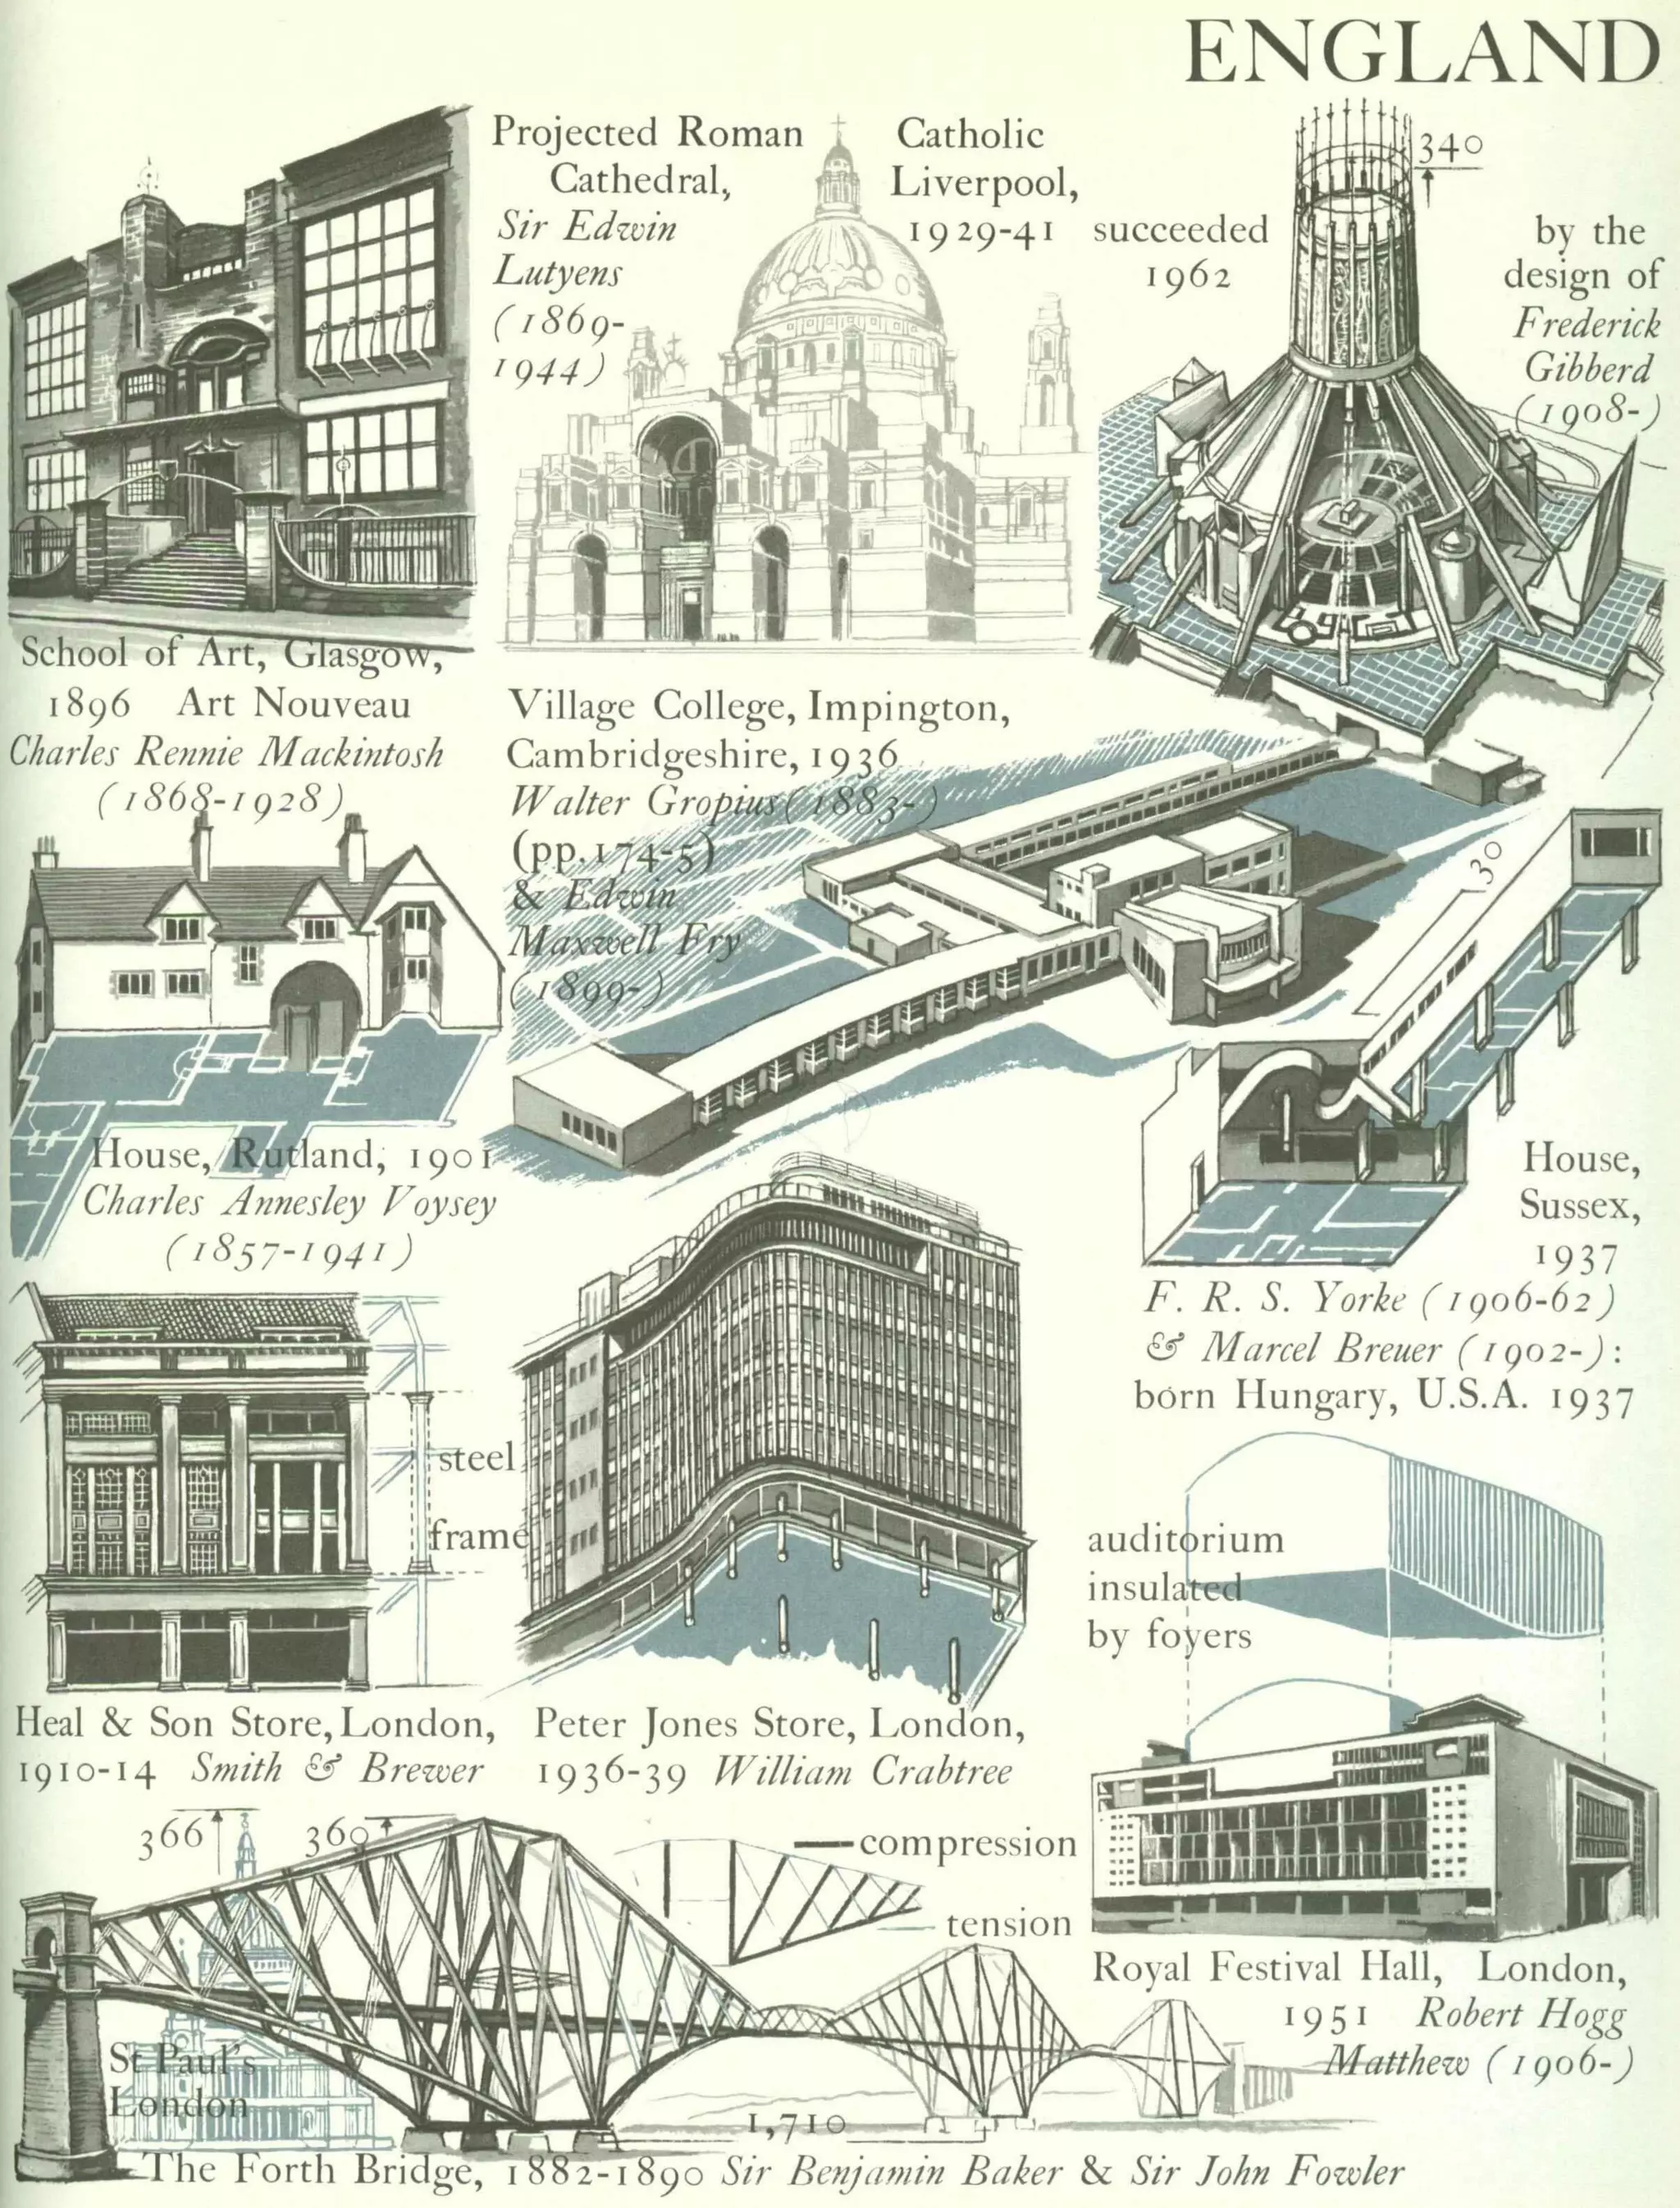 ENGLAND
Projected Roman Catholic
Cathedral, Liverpool,
Sir Edwin 1929-41
Lutyens
(1869-
1944)
succeeded by the
1962 design of
Frederick
Gibberd
(1908-)
340
School of Art, Glasgow,
1896 Art Nouveau
Charles Rennie Mackintosh
(1868-1928)
Village College, Impington,
Cambridgeshire, 1936
Walter Gropius (1883-)
(pp. 174-5)
& Edwin
Maxwell Fry
(1899-)
30
House, Rutland, 1901
Charles Annesley Voysey
(1857-1941)
House,
Sussex,
1937
F. R. S. Yorke (1906-62)
& Marcel Breuer (1902-):
born Hungary, U.S.A. 1937
steel
frame
auditorium
insulated
by foyers
Heal & Son Store, London,
1910-14 Smith & Brewer
Peter Jones Store, London,
1936-39 William Crabtree
366
360
compression
tension
Royal Festival Hall, London,
1951 Robert Hogg
Matthew (1906-)
St Paul's
London
1,710
The Forth Bridge, 1882-1890 Sir Benjamin Baker & Sir John Fowler